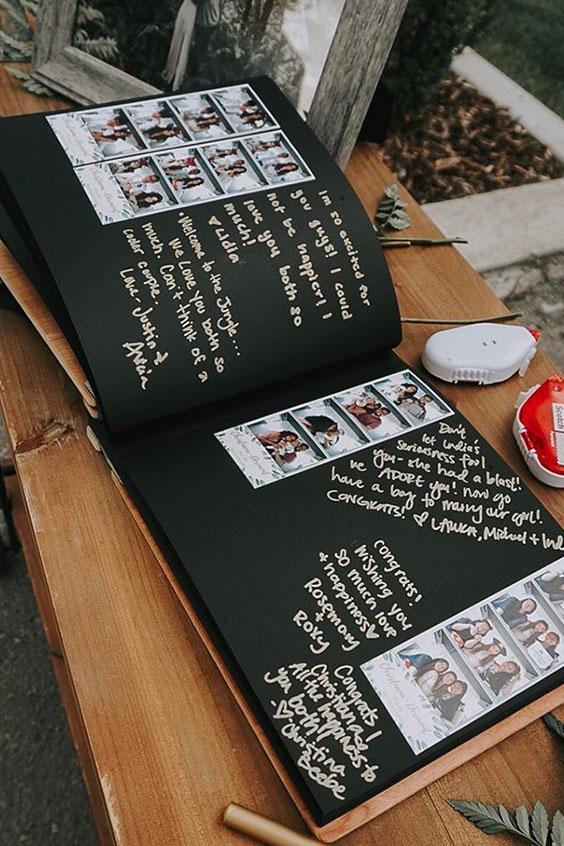 I'm so excited for
you guys! I could
not be happier! I
love you both so
much!
♥ Lidia
"Welcome to the Jungle...
We Love you both so
much. Can't think of a
cooler couple.
Love Justin &
Don't
let India's
seriousness fool
you - she had a blast!
we ADORE you! now go
have a boy to marry our girl!
CONGRATS! ♡ LAURA, Michael + Ind
congrats!
Wishing you
so much love
+ happiness ♥
Rosemary
+
Roxy
Congrats!
Christina
All the happiness to
you both!
♡ Christina
Beebe
Scotch